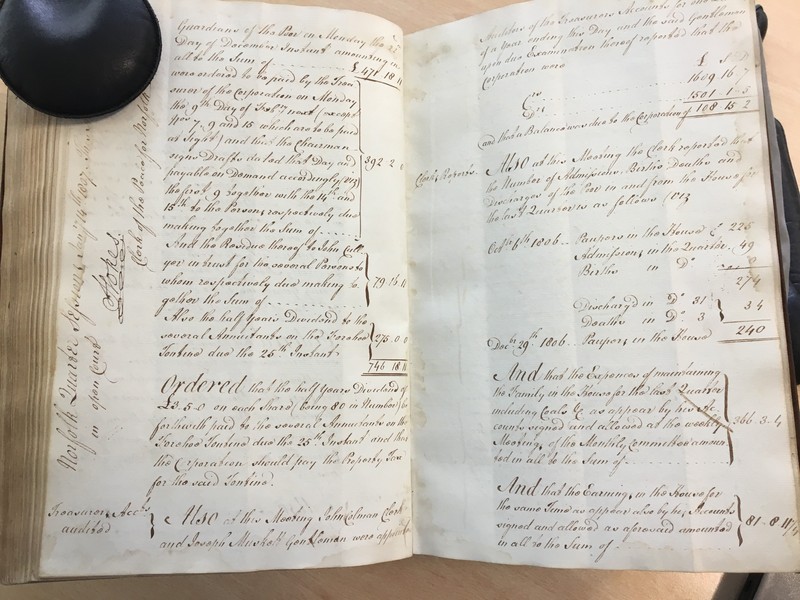 Guardians of the Poor on Monday the 22
Day of December Instant amounting in
all to the Sum of
£ 471 18 11
were ordered to be paid by the Trea
surer of the Corporation on Monday
the 9th Day of Feby next (except
Nos 7, 9 and 15 which are to be paid
at Sight) and that the Chairman
sign Drafts dated that Day and
payable on Demand accordingly (viz)
the first 9 together with the 14th and
15th to the Persons respectively due
making together the Sum of
392 2
And the Residue thereof to John Cull
yer in trust for the several Persons to
whom respectively due making to
gether the Sum of
79 16 11
Also the half Years Dividend to the
several Annuitants on the Forehoe
Tontine due the 25th Instant
275 0 0
746 18 11
Ordered that the half Years Dividend of
£3.5.0 on each Share (being 80 in Number) be
forthwith paid to the several Annuitants on the
Forehoe Tontine due the 25th Instant and that
the Corporation should pay the Property Tax
for the said Tontine.
Treasurers Accts
audited
Also at this Meeting John Colman Clerk
and Joseph Muskett Gentleman were appointed
Norfolk Quarter Sessions
in open Court
Clerk of the Peace for Norfolk
Auditors of the Treasurers Accounts for
of a Year ending this Day and the said Gentlemen
upon due Examination thereof reported that the
Corporation were
£ S D
Crs 1609 16 7
Drs 1501 1 5
and that a Balance was due to the Corporation of 108 15 2
Clerks Reports.
Also at this Meeting the Clerk reported that
the Number of Admissions, Births, Deaths and
Discharges of the Poor in and from the House for
the last Quarter is as follows (viz
Octr 6th 1806 Paupers in the House 225
Admissions in the Quarter 49
Births in Do
274
Discharg'd in Do 31
Deaths in Do 3
34
Decr 29th 1806 Paupers in the House 240
And that the Expences of maintaining
the Family in the House for the last Quarter
including Coals &c as appear by his Ac
counts signed and allowed at the weekly
Meetings of the Monthly Committee amoun
ted in all to the Sum of
366 3 4
And that the Earnings in the House for
the same Time as appear also by his Accounts
signed and allowed as aforesaid amounted
in all to the Sum of
81 8 11 1/4